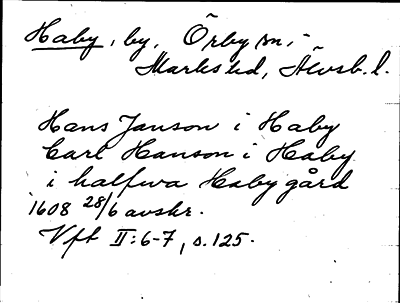 Haby, by, Örby sn,
Marks hd, Älvsb. l.
Hans Janson i Haby
Carl Hanson i Haby
i halfwa Haby gård
1608 28/6 avskr.
Vft II:6-7, s. 125.